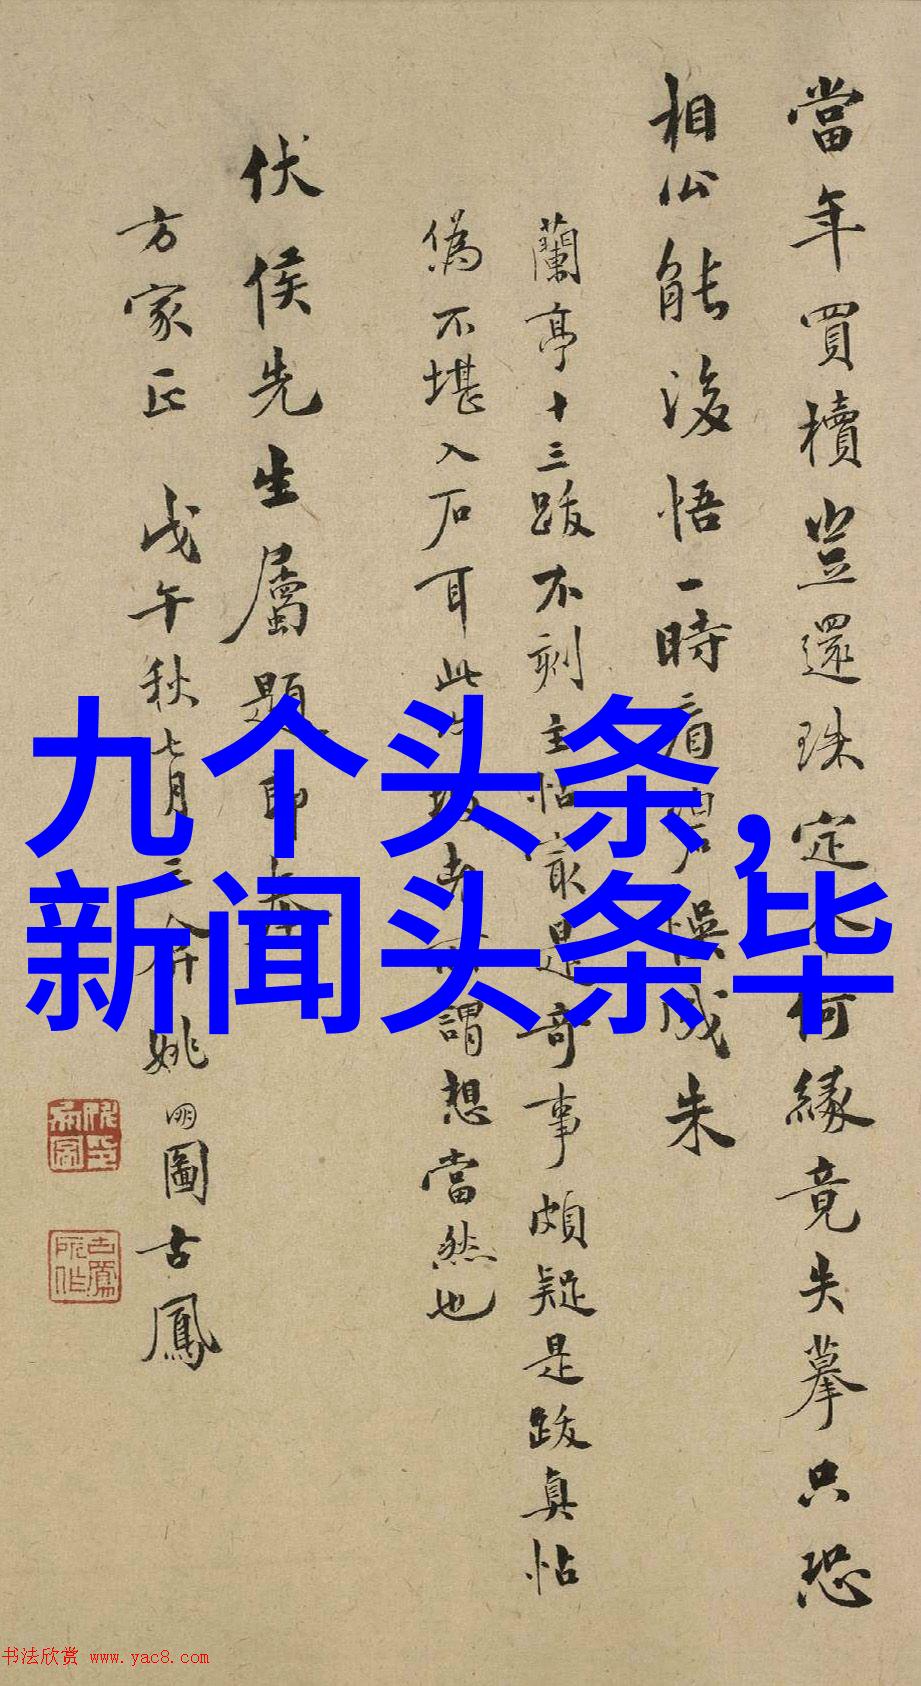 當年買櫝豈還珠定何緣竟失摹只恐
相公能後悟一時看碧悮成朱
蘭亭十三跋不刻主帖最是奇事頗疑是跋真帖
偽不堪入石耳此謂想當然也
伏侯先生屬題即奉
方家正 戊午秋七月 姚明圖古鳳
九个头条,
新闻头条毕
书法欣赏 www.yac8.com